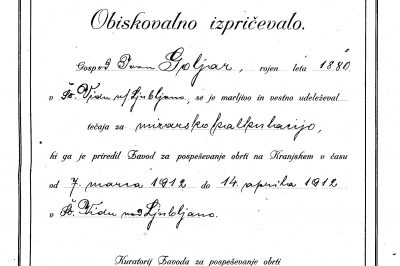 Obiskovalno izpričevalo.
Gospod Ivan Goljar, rojen leta 1880
v Št. Vidu n/Ljubljano, se je marljivo in vestno udeleževal
tečaja za mizarsko kalkulacijo,
ki ga je priredil Zavod za pospeševanje obrti na Kranjskem v času
od 7. marca 1912 do 14. aprila 1912
v Št. Vidu nad Ljubljano.
Kuratorij Zavoda za pospeševanje obrti